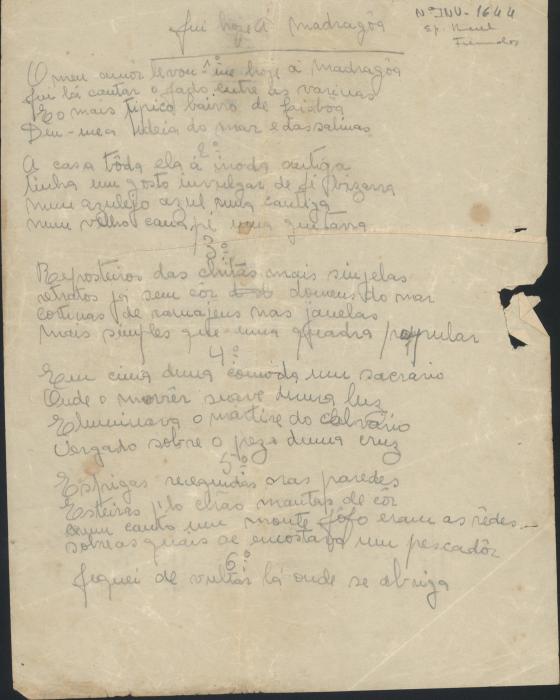 Fui hoje á madragôa
Nº INV. 1644
Esp.
Fernandes
1º
O meu amor levou-me hoje á madragôa
Fui lá cantar o fado entre as varinas
E o mais tipico bairro de Lisboa
Deu-me a ideia do mar e das salinas
2º
A casa tôda ela á moda antiga
tinha um gosto invulgar de si bizarra
num azulejo azul uma cantiga
num velho canapé uma guitarra
3º
Reposteiros das chitas mais singelas
retratos já sem côr domens do mar
cortinas de ramajens nas janelas
mais simples que uma quadra popular
4º
Em cima duma cómoda um sacrário
Onde o morrêr suave duma luz
Eluminava o mártire do calvário
Vergado sobre o pezo duma cruz
5º
Espigas resequidas nas paredes
Esteiras p'lo chão mantas de côr
num canto um monte fôfo eram as rêdes
sobre as quais se encostava um pescadôr
6º
Fiquei de vultar lá onde se abriga